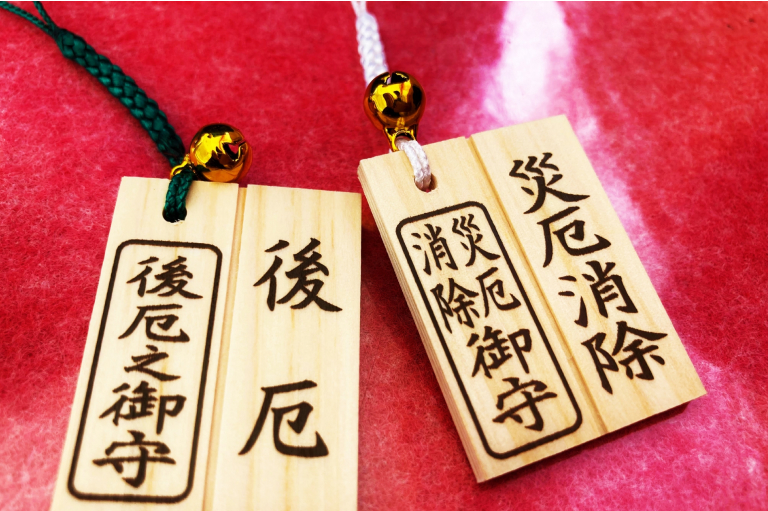 後厄之御守
後厄
災厄
消除
御守
災厄消除